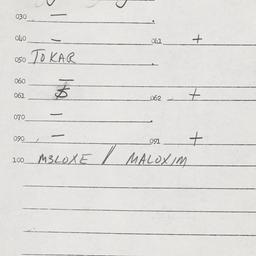 030 —
040 — 041 +
050 TOKAR
060 —
061 062 +
070 —
090 — 091 +
100 M3LOXE // MALOXIM